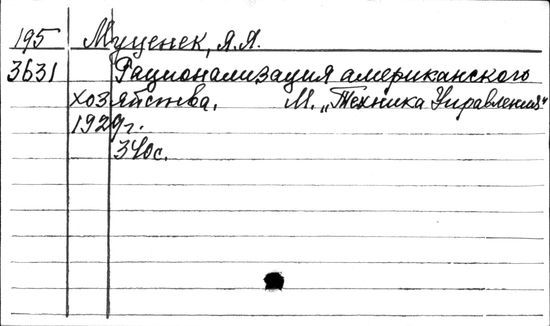 195 Муценек, Я.Я.
3631 Рационализация американского
хозяйства. М. „Техника Управления“
1929г.
340с.